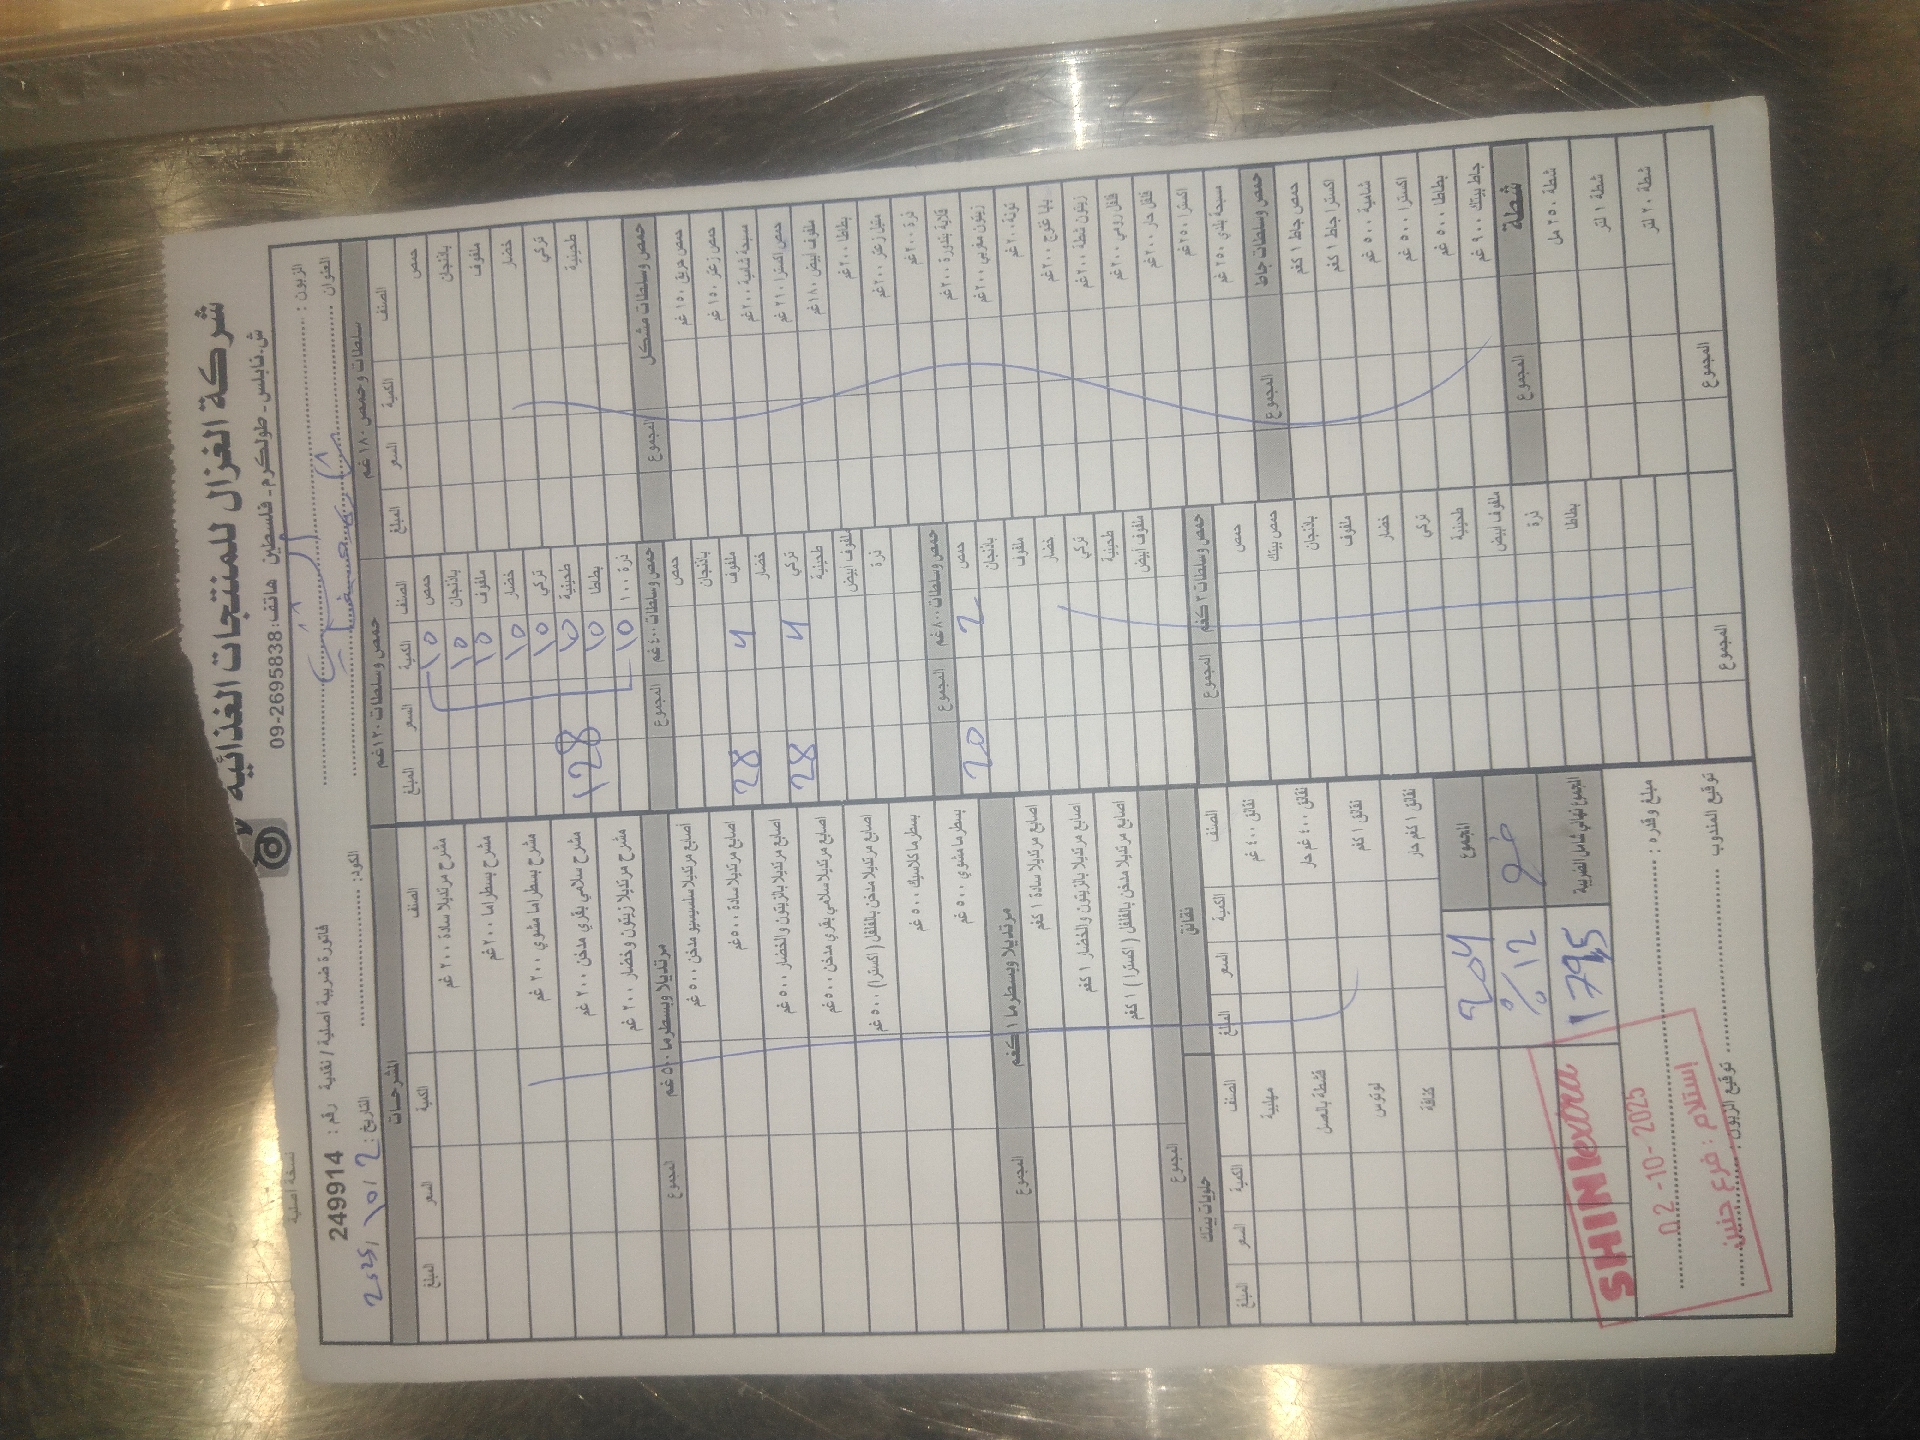 نسخة اصلية
شركة الغزال للمنتجات الغذائية
ش.نابلس - طولكرم - فلسطين هاتف: 09-2695838
الزبون :
فاتورة ضريبية اصلية / نقدية رقم : 249914
العنوان :
الكود:
التاريخ : 2 / 10 / 2025
سلطات وحمص ١٨٠ غم
الصنف الكمية السعر المبلغ
حمص
باذنجان
ملفوف
خضار
تركي
طحينية
حمص وسلطات مشكل المجموع
حمص حريق ١٥٠ غم
حمص زعتر ١٥٠ غم
مسبحة شامية ٢٠٠ غم
حمص اكسترا ٢١٠ غم
ملفوف ابيض ١٨٠ غم
بطاطا ٢٠٠ غم
متبل زعتر ٢٠٠ غم
ذرة ٢٠٠ غم
قلاية بندورة ٢٠٠ غم
زيتون مغربي ٢٠٠ غم
تونة ٢٠٠ غم
بابا غنوج ٢٠٠ غم
زيتون شطة ٢٠٠ غم
فلفل رومي ٢٠٠ غم
فلفل حار ٢٠٠ غم
اكسترا ٢٥٠ غم
مسبحة بلدي ٢٥٠ غم
حمص وسلطات جاط المجموع
حمص جاط ١ كغم
اكسترا جاط ١ كغم
شامية ٥٠٠ غم
اكسترا ٥٠٠ غم
بطاطا ٥٠٠ غم
جاط بيتك ٩٠٠ غم
شطة المجموع
شطة ٢٥٠ مل
شطة ١ لتر
شطة ٢٠ لتر
المجموع
حمص وسلطات ١٢٠ غم
الصنف الكمية السعر المبلغ
حمص 10
باذنجان 10
ملفوف 10
خضار 10
تركي 10
طحينية 10 128
بطاطا 10
ذرة ١٠٠ 10
حمص وسلطات ٤٠٠ غم المجموع
حمص
باذنجان
ملفوف 4 28
خضار
تركي 4 28
طحينية
ملفوف أبيض
ذرة
حمص وسلطات ٨٠٠ غم المجموع
حمص 2 20
باذنجان
ملفوف
خضار
تركي
طحينية
ملفوف أبيض
حمص وسلطات ٣ كغم المجموع
حمص
حمص بيتك
باذنجان
ملفوف
خضار
تركي
طحينية
ملفوف ابيض
ذرة
بطاطا
المجموع
المشرحات
الصنف الكمية السعر المبلغ
مشرح مرتديلا سادة ٢٠٠ غم
مشرح بسطراما ٢٠٠ غم
مشرح بسطراما مشوي ٢٠٠ غم
مشرح سلامي بقري مدخن ٢٠٠ غم
مشرح مرتديلا زيتون وخضار ٢٠٠ غم
مرتديلا وبسطرما ٥٠٠ غم المجموع
اصابع مرتديلا سلسيسيو مدخن ٥٠٠ غم
اصابع مرتديلا سادة ٥٠٠ غم
اصابع مرتديلا بالزيتون والخضار ٥٠٠ غم
اصابع مرتديلا سلامي بقري مدخن ٥٠٠ غم
اصابع مرتديلا مدخن بالفلفل (اكسترا) ٥٠٠ غم
بسطرما كلاسيك ٥٠٠ غم
بسطرما مشوي ٥٠٠ غم
مرتديلا وبسطرما ١ كغم المجموع
اصابع مرتديلا سادة ١ كغم
اصابع مرتديلا بالزيتون والخضار ١ كغم
اصابع مرتديلا مدخن بالفلفل (اكسترا) ١ كغم
المجموع
نقانق
الصنف الكمية السعر المبلغ
نقانق ٤٠٠ غم
نقانق ٤٠٠ غم حار
نقانق ١ كغم
نقانق ١ كغم حار
حلويات بيتك
الصنف الكمية السعر المبلغ
مهلبية
قشطة بالعسل
لوتوس
كنافة
المجموع 204
%12
المجموع النهائي شامل الضريبة 179,5
مبلغ وقدره :
توقيع المندوب
توقيع الزبون :
SHINI extra
02 -10- 2025
إستلام : فرع جنين